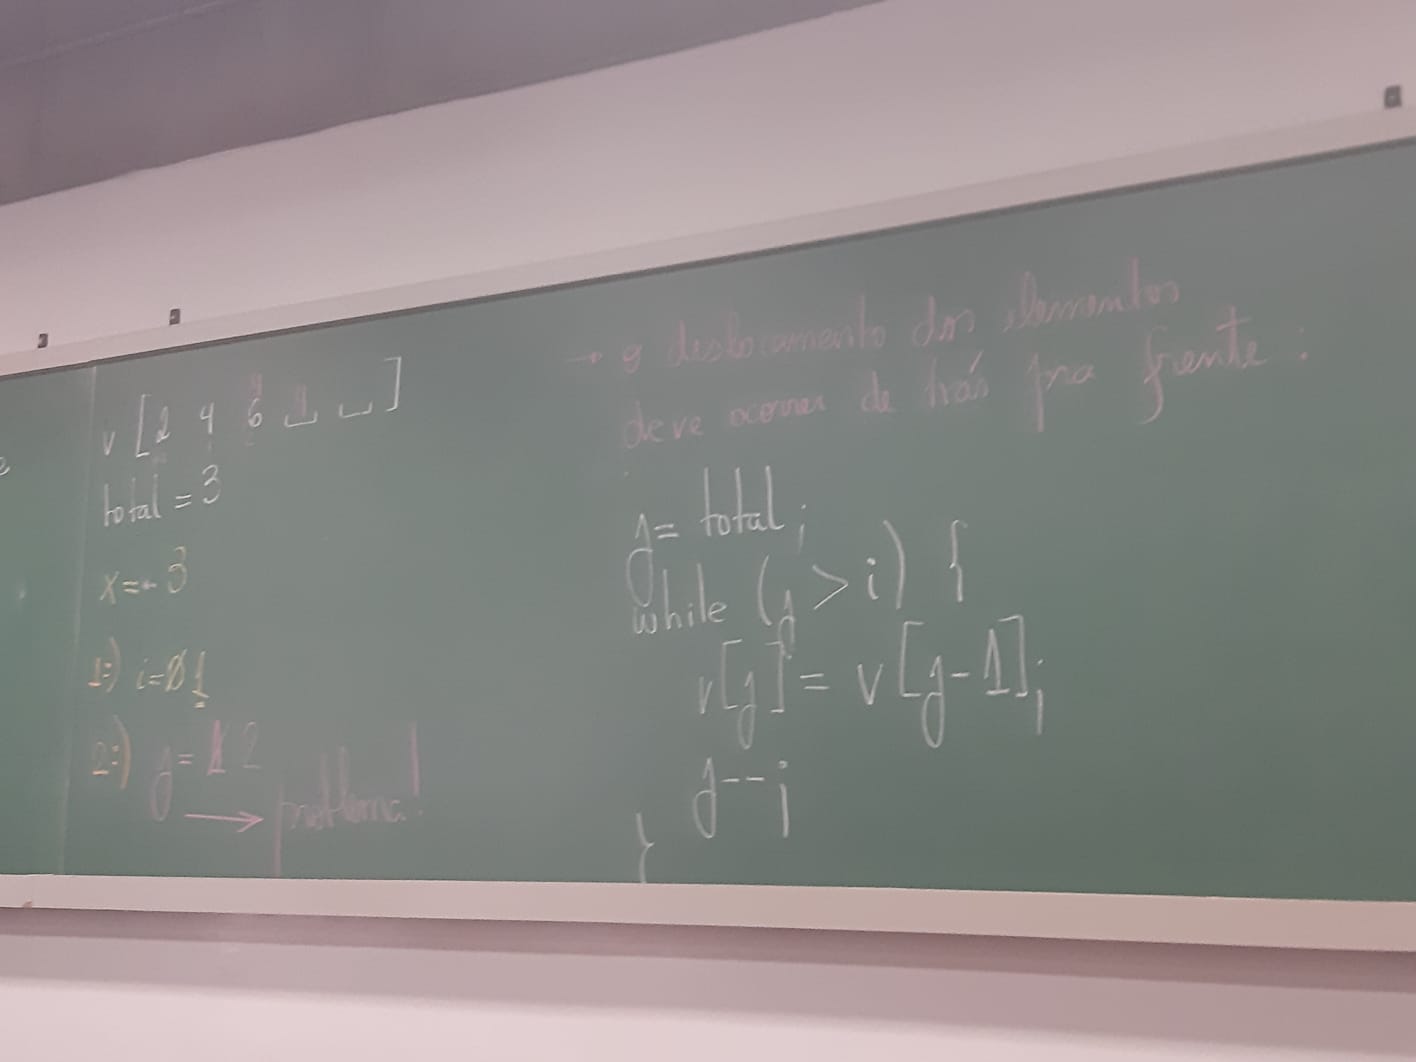 v [ 2 4 6 _ _ ]
total = 3
x = 3
1:) i=0 1
2:) j= 1 2
→ problema!
→ o deslocamento dos elementos
deve ocorrer de trás pra frente:
j= total;
while (j > i) {
v[j] = v[j-1];
j--;
}